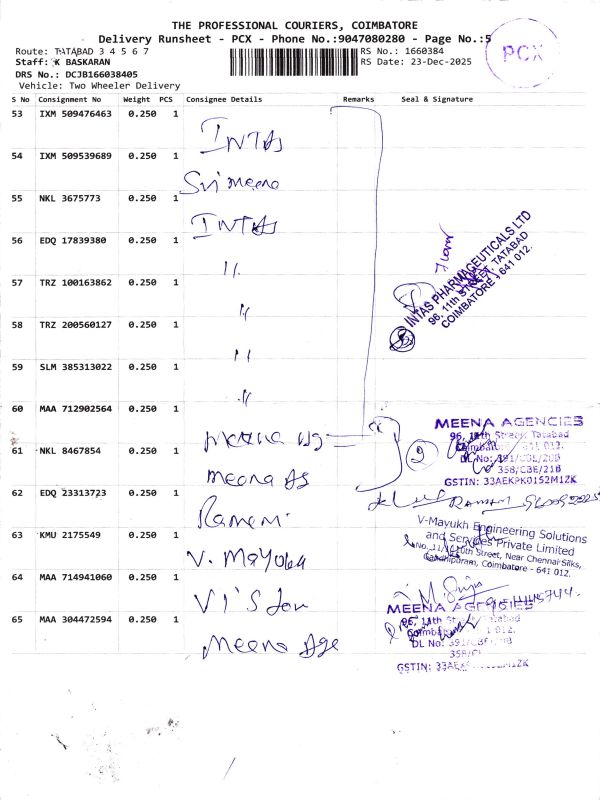 THE PROFESSIONAL COURIERS, COIMBATORE
Delivery Runsheet - PCX - Phone No.:9047080280 - Page No.:5
Route: TATABAD 3 4 5 6 7
RS No.: 1660384
Staff: K BASKARAN
RS Date: 23-Dec-2025
DRS No.: DCJB166038405
Vehicle: Two Wheeler Delivery
PCX
S No Consignment No Weight PCS Consignee Details Remarks Seal & Signature
53 IXM 509476463 0.250 1 INTAS
54 IXM 509539689 0.250 1 Sri meena
55 NKL 3675773 0.250 1 INTAS
56 EDQ 17839380 0.250 1 "
57 TRZ 100163862 0.250 1 "
58 TRZ 200560127 0.250 1 "
59 SLM 385313022 0.250 1 "
INTAS PHARMACEUTICALS LTD
96, 11th STREET, TATABAD
COIMBATORE - 641 012.
60 MAA 712902564 0.250 1 Meena Ag
61 NKL 8467854 0.250 1 Meena Ag
2
MEENA AGENCIES
96, 11th Street, Tatabad
Coimbatore - 641 012.
DL No: 391/CBE/20B
358/CBE/21B
GSTIN: 33AEKPK0152M1ZK
62 EDQ 23313723 0.250 1
63 KMU 2175549 0.250 1 V. Mayuka
V-Mayukh Engineering Solutions
and Services Private Limited
No. 11/1, 10th Street, Near Chennai Silks,
Gandhipuram, Coimbatore - 641 012.
64 MAA 714941060 0.250 1
65 MAA 304472594 0.250 1 Meena Age
MEENA AGENCIES
96, 11th Street, Tatabad
Coimbatore 641 012.
DL No: 391/CBE/20B
358/C
GSTIN: 33AEK M1ZK